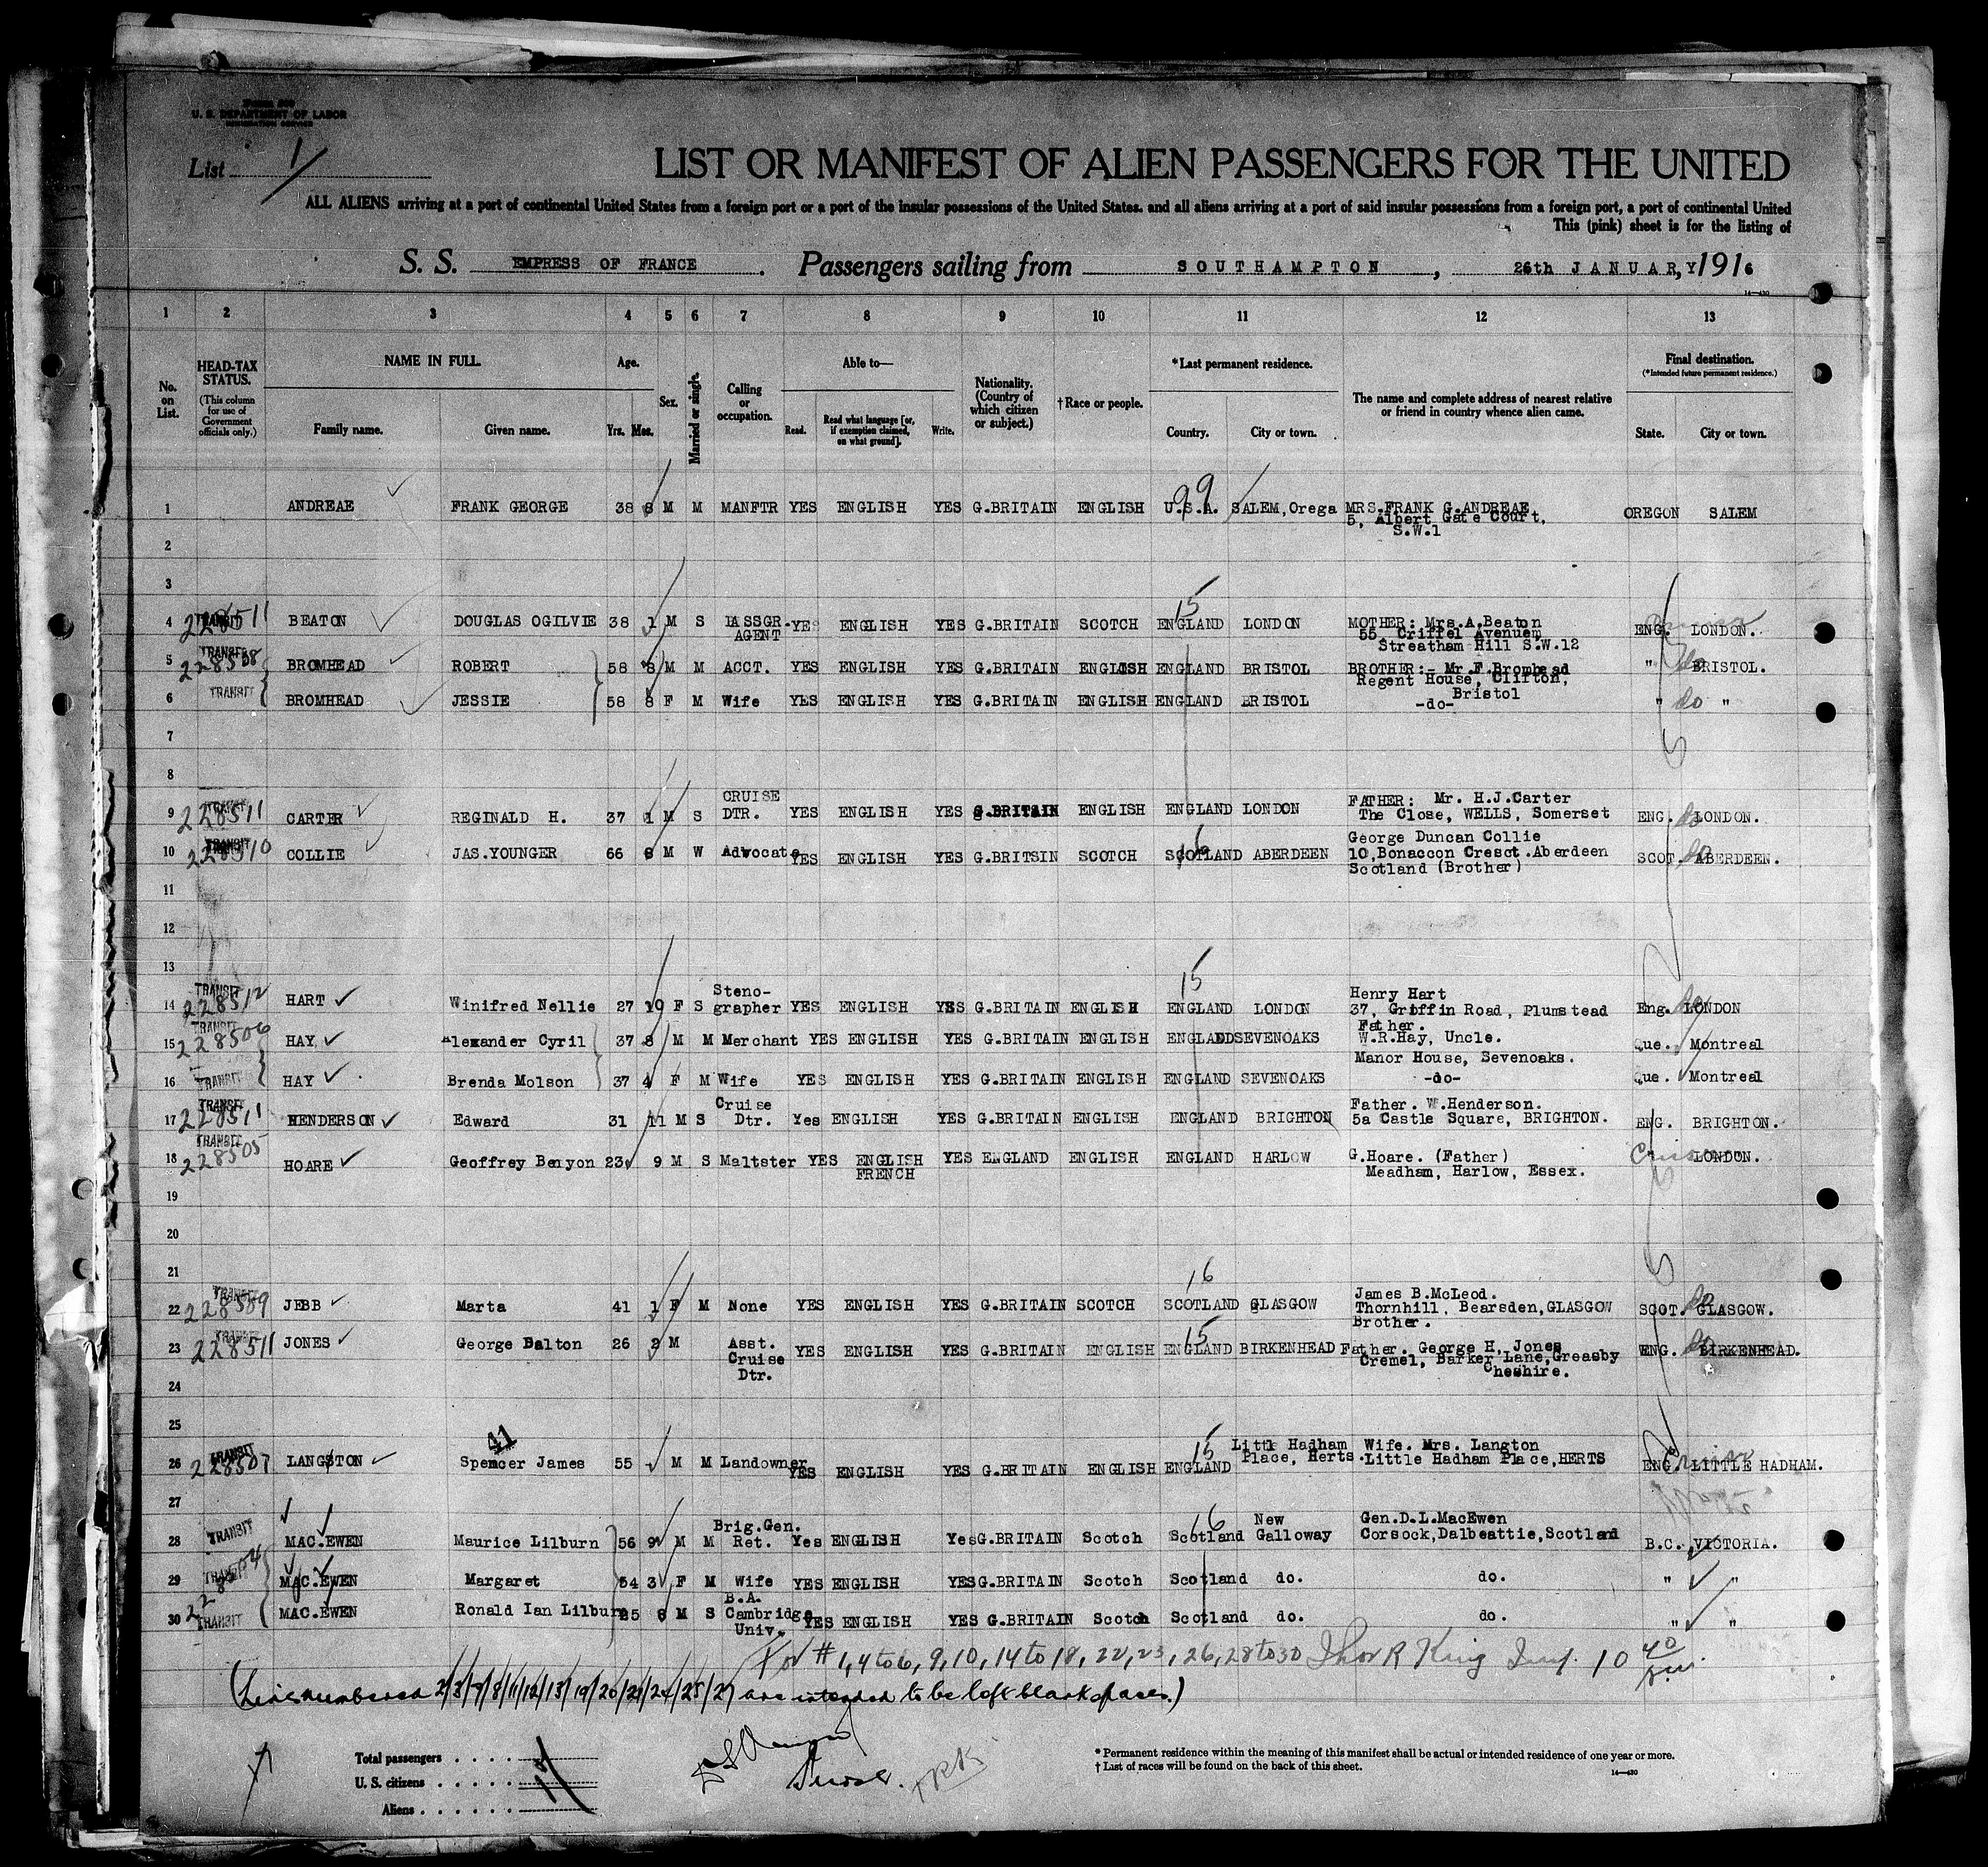 Form 500
U. S. DEPARTMENT OF LABOR
IMMIGRATION SERVICE
List 1
LIST OR MANIFEST OF ALIEN PASSENGERS FOR THE UNITED
ALL ALIENS arriving at a port of continental United States from a foreign port or a port of the insular possessions of the United States, and all aliens arriving at a port of said insular possessions from a foreign port, a port of continental United
This (pink) sheet is for the listing of
S. S. EMPRESS OF FRANCE. Passengers sailing from SOUTHAMPTON, 26th JANUARY, 1916
1 2 3 4 5 6 7 8 9 10 11 12 13
No. on List.
HEAD-TAX STATUS.
(This column for use of Government officials only.)
NAME IN FULL.
Family name. Given name.
Age.
Yrs. Mos.
Sex.
Married or single.
Calling or occupation.
Able to—
Read. Read what language [or, if exemption claimed, on what ground]. Write.
Nationality. (Country of which citizen or subject.)
†Race or people.
*Last permanent residence.
Country. City or town.
The name and complete address of nearest relative or friend in country whence alien came.
Final destination.
(*Intended future permanent residence.)
State. City or town.
99
1 ANDREAE FRANK GEORGE 38 8 M M MANFTR YES ENGLISH YES G.BRITAIN ENGLISH U.S.A. SALEM,Orega MRS.FRANK G.ANDREAE 5, Albert Gate Court, S.W.1 OREGON SALEM
2
3
15
4 TRANSIT 228511 BEATON DOUGLAS OGILVIE 38 1 M S PASSGR. AGENT YES ENGLISH YES G.BRITAIN SCOTCH ENGLAND LONDON MOTHER: Mrs.A.Beaton 55, Criffel Avenuem Streatham Hill S.W.12 ENG. LONDON.
5 TRANSIT 228508 BROMHEAD ROBERT 58 8 M M ACCT. YES ENGLISH YES G.BRITAIN ENGLISH ENGLAND BRISTOL BROTHER:- Mr.F.Bromhead Regent House, Clifton, Bristol " BRISTOL. do
6 TRANSIT BROMHEAD JESSIE 58 8 F M Wife YES ENGLISH YES G.BRITAIN ENGLISH ENGLAND BRISTOL -do- " do "
7
8
9 TRANSIT 228511 CARTER REGINALD H. 37 1 M S CRUISE DTR. YES ENGLISH YES G.BRITAIN ENGLISH ENGLAND LONDON FATHER: Mr. H.J.Carter The Close, WELLS, Somerset ENG. do LONDON.
10 TRANSIT 228510 COLLIE JAS.YOUNGER 66 8 M W Advocate YES ENGLISH YES G.BRITSIN SCOTCH SCOTLAND 16 ABERDEEN George Duncan Collie 10,Bonaccon Cresct.Aberdeen Scotland (Brother) SCOT. do ABERDEEN.
11
12
13
15
14 TRANSIT 228512 HART Winifred Nellie 27 10 F S Steno-grapher YES ENGLISH YES G.BRITAIN ENGLISH ENGLAND LONDON Henry Hart 37, Griffin Road, Plumstead Father. Eng. do LONDON
15 TRANSIT 228506 HAY Alexander Cyril 37 8 M M Merchant YES ENGLISH YES G.BRITAIN ENGLISH ENGLAND SEVENOAKS W.R.Hay, Uncle. Manor House, Sevenoaks. Que. Montreal
16 TRANSIT HAY Brenda Molson 37 4 F M Wife YES ENGLISH YES G.BRITAIN ENGLISH ENGLAND SEVENOAKS -do- Que. Montreal
17 TRANSIT 228511 HENDERSON Edward 31 11 M S Cruise Dtr. Yes ENGLISH YES G.BRITAIN ENGLISH ENGLAND BRIGHTON Father. W.Henderson. 5a Castle Square, BRIGHTON. ENG. BRIGHTON.
18 TRANSIT 228505 HOARE Geoffrey Benyon 23 9 M S Maltster YES ENGLISH FRENCH YES ENGLAND ENGLISH ENGLAND HARLOW G.Hoare. (Father) Meadham, Harlow, Essex. " LONDON.
19
20
21
16
22 TRANSIT 228509 JEBB Marta 41 1 F M None YES ENGLISH YES G.BRITAIN SCOTCH SCOTLAND GLASGOW James B.McLeod. Thornhill, Bearsden,GLASGOW Brother. SCOT. do GLASGOW.
23 TRANSIT 228511 JONES George Dalton 26 2 M Asst. Cruise Dtr. YES ENGLISH YES G.BRITAIN ENGLISH ENGLAND 15 BIRKENHEAD Father. George H. Jones Cremel, Barker Lane,Greasby Cheshire. ENG. do BIRKENHEAD.
24
25
41
26 TRANSIT 228507 LANGSTON Spencer James 55 M M Landowner YES ENGLISH YES G.BRITAIN ENGLISH ENGLAND 15 Little Hadham Place, Herts. Wife. Mrs. Langton Little Hadham Place,HERTS ENG. LITTLE HADHAM.
27
28 TRANSIT MAC.EWEN Maurice Lilburn 56 9 M M Brig.Gen. Ret. Yes ENGLISH Yes G.BRITAIN Scotch Scotland 16 New Galloway Gen.D.L.MacEwen Corsock,Dalbeattie,Scotland B.C. VICTORIA.
29 TRANSIT MAC.EWEN Margaret 54 3 F M Wife YES ENGLISH YES G.BRITAIN Scotch Scotland do. do. " "
30 TRANSIT MAC.EWEN Ronald Ian Lilburn 25 8 M S B.A. Cambridge Univ. YES ENGLISH YES G.BRITAIN Scotch Scotland do. do. " "
For # 1, 4 to 6, 9, 10, 14 to 18, 22, 23, 26, 28 to 30 Thos R King Insp. 10 40
(Lines numbered 2/3/7/8/11/12/13/19/20/21/24/25/27 are intended to be left blank spaces.)
Total passengers
U. S. citizens
Aliens
Surgeon.
TRK
* Permanent residence within the meaning of this manifest shall be actual or intended residence of one year or more.
† List of races will be found on the back of this sheet.
14—430